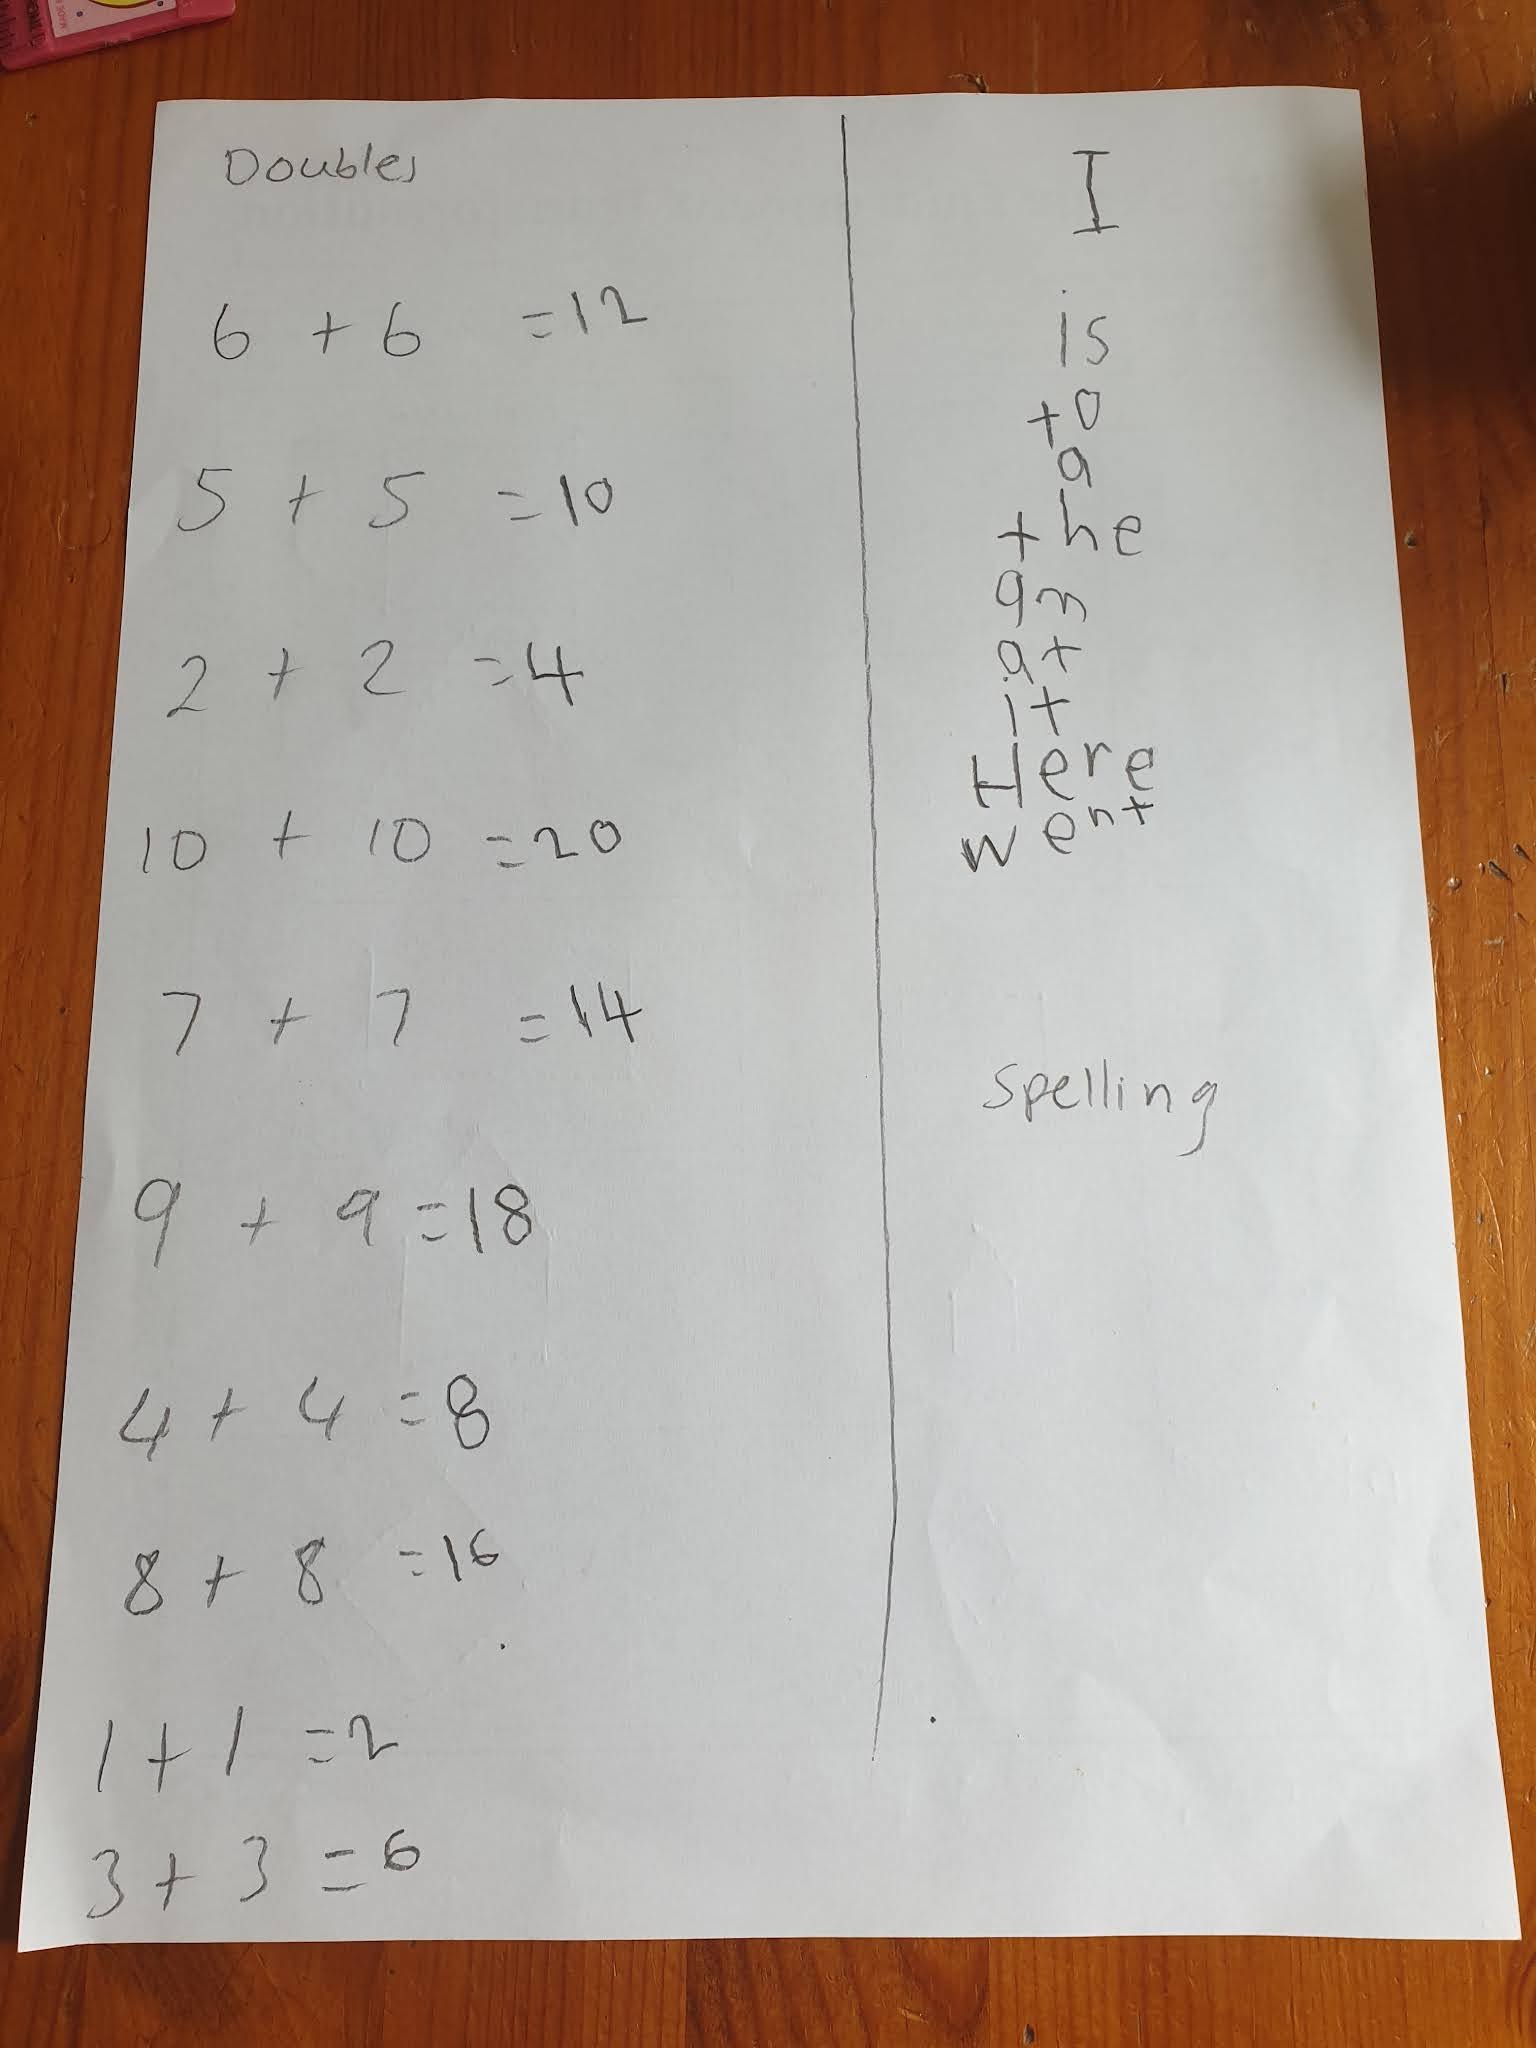 Doubles
6 + 6 = 12
5 + 5 = 10
2 + 2 = 4
10 + 10 = 20
7 + 7 = 14
9 + 9 = 18
4 + 4 = 8
8 + 8 = 16
1 + 1 = 2
3 + 3 = 6
I
is
to
a
the
am
at
it
Here
went
Spelling